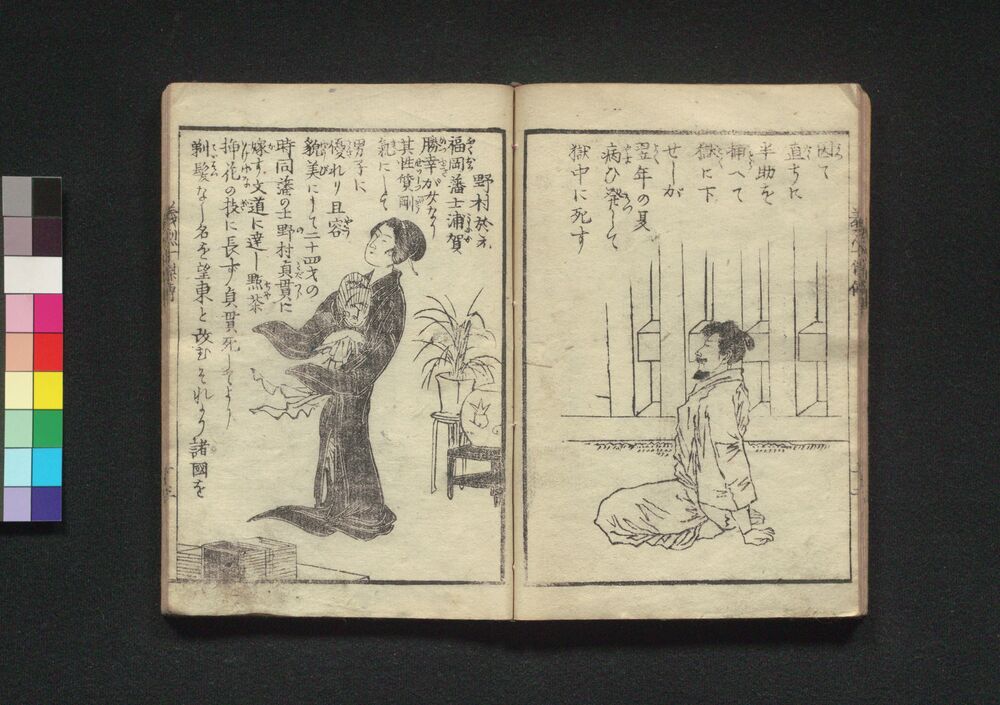 因て
直ちに
半助を
捕へて
獄に下
せしが
翌年の夏
病ひ発して
獄中に死す
野村於
福岡藩士浦賀
勝幸が女なり
其性質剛
気にして
男子に
優れり且容
貌美にして二十四才の
時同藩の士野村貞貫に
嫁す文道に達し點茶
挿花の技に長ず貞貫死してより
剃髪なし名を望東と改むそれより諸國を